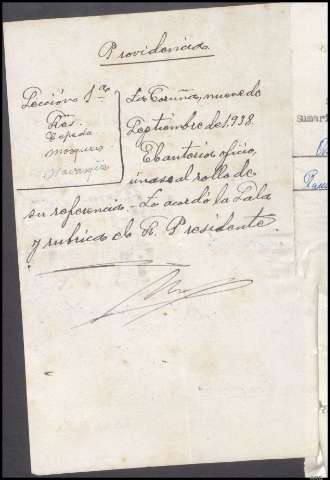 Providencia
Sección 1ª
Srs.
Cepeda
Mosquera
Navarro
La Coruña, nueve de
Septiembre de 1.938.
El anterior oficio,
únase al rollo de
su referencia - Lo acordó la Sala
y rubrica el Sr. Presidente.
Sumari